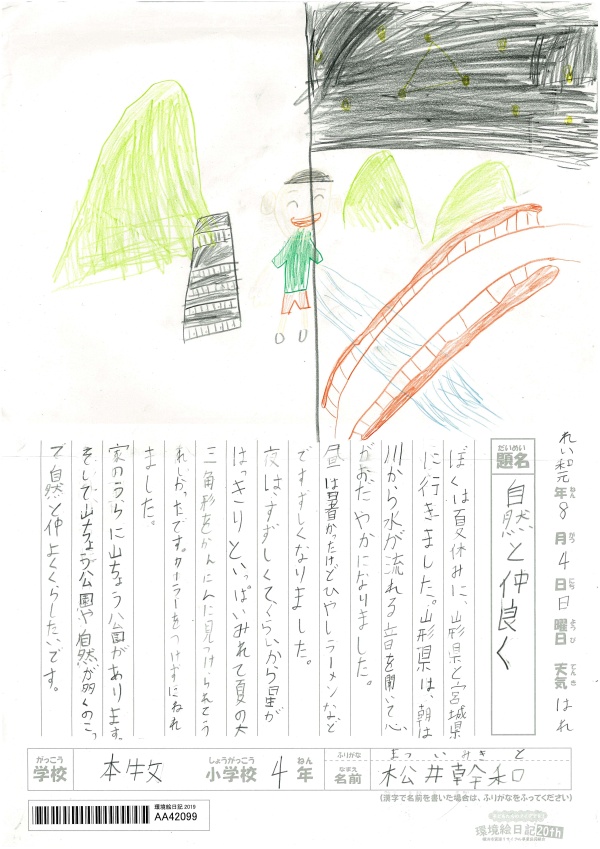 れい和元年8月4日日曜日 天気はれ
題名 だいめい
自然と仲良く
ぼくは夏休みに、山形県と宮城県
に行きました。山形県は、朝は
川から水が流れる音を聞いて心
がおだやかになりました。
昼は暑かったけどひやしラーメンなど
ですずしくなりました。
夜はすずしくてくらいから星が
はっきりといっぱいみれて夏の大
三角形をかんたんに見つけられてう
れしかったです。クーラーをつけずにねれ
ました。
家のうらに山ちょう公園があります。
そして、山ちょう公園や自然が多くのこっ
て自然と仲よくくらしたいです。
がっこう 学校 本牧 しょうがっこう 小学校 4 ねん 年
ふりがな まついみきと
なまえ 名前 松井幹和
(漢字で名前を書いた場合は、ふりがなをふってください)
環境絵日記 2019
AA42099
環境絵日記20th